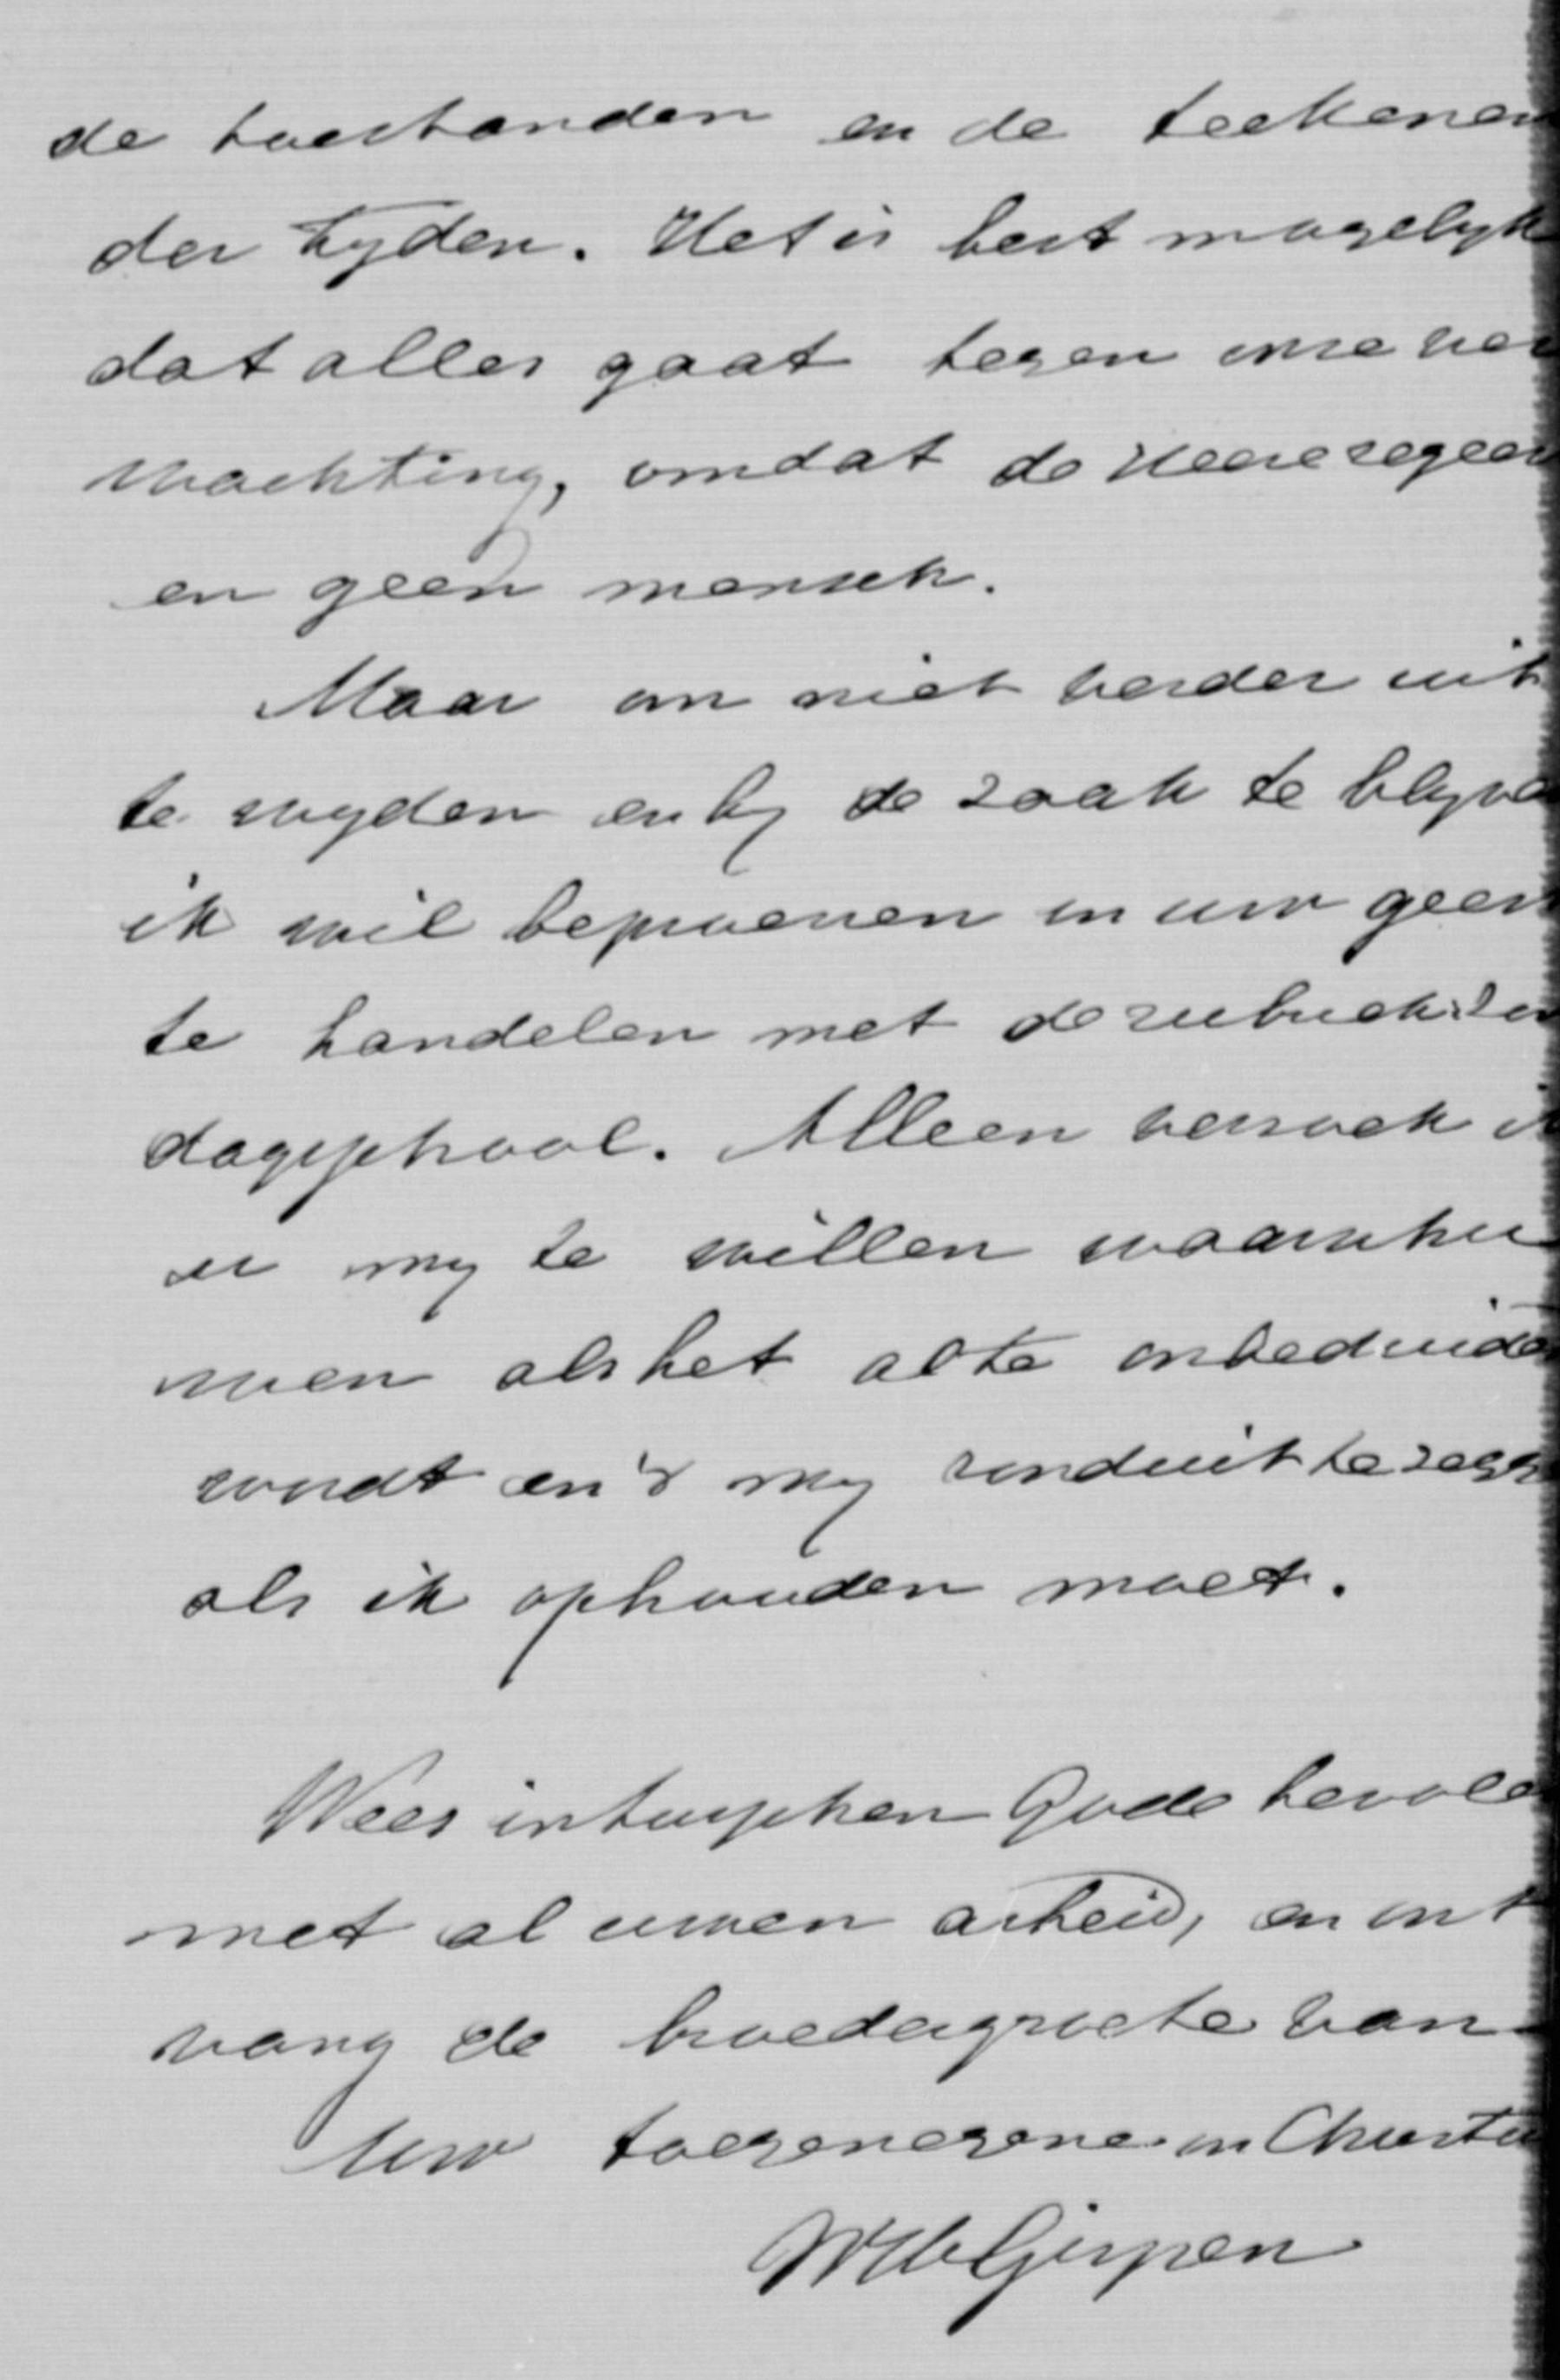 de toestanden en de teekenen
der tyden. Het is best mogelyk
dat alles gaat tegen onze ver
wachting, omdat de Heere regeer
en geen mensch.
Maar om niet verder uit
te wyden en by de zaak te blyve
ik wil beproeven in uw geest
te handelen met de rubriek Zon
dagschool. Alleen verzoek ik
u my te willen waarschu
wen als het al te onbeduide
wordt en my ronduit te zegg
als ik ophouden moet.
Wees intusschen Gode bevole
met al uwen arbeid, en ont
vang de broedergroete van
Uw toegenegene in Christu
W H Gispen